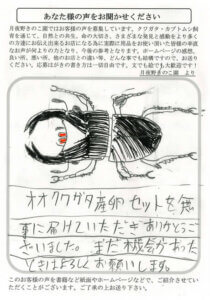 あなた様の声をお聞かせください
月夜野きのこ園ではお客様の声を募集しています。クワガタ・カブトムシ飼
育を通じて、自然との共生、命の大切さ、さまざまな発見と感動をより多く
の方達にお伝え出来るお店になる為に実際にでもお使い頂いた皆様の率直
なお声が何よりの力となり、今後の参考となります。ホームページの感想、
良い所、悪い所、他のお店との違い等、どんな事でも結構ですので、お送り
ください。応募はがきの書き方は一切自由です。文でも絵でも大歓迎です！
月夜野きのこ園 より
オオクワガタ産卵セットを無
事に届けていただきありがとうご
ざいました。また機会があった
ときはよろしくお願いします。
このお客様の声を書籍など紙面やホームページなどで、ご紹介させてい
ただくことがございます。ご了承の上お送り下さい。